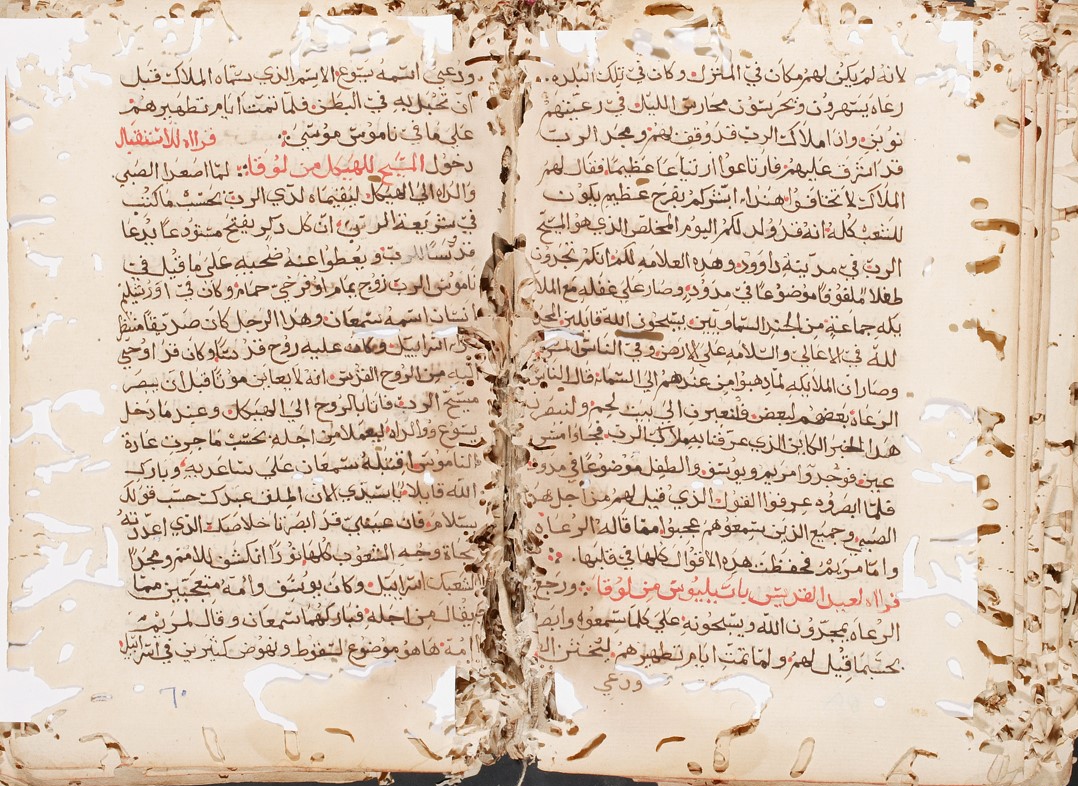 لانه لم يكن لهم مكان في المنزل وكان في تلك البلده
رعاه يسهرون ويحرسون محارس الليل في رعيتهم
نوبن واذا ملاك الرب قد وقف لهم ومجد الرب
قد اشرق عليهم فارتاعوا ارتياعا عظيما فقال لهم
الملاك لا تخافوا هنذا ابشركم بفرح عظيم يكون
للشعب كله انه قد ولد لكم اليوم المخلص الذي هو المسيح
الرب في مدينة داوود وهذه العلامه لكم انكم تجدون
طفلا ملفوفا موضوعا في مدود وصار علي غفله مع الملا
يكه جماعة من الجند السماويين يسبحون الله قايلين المجد
لله في الاعالي والسلامه علي الارض وفي الناس
وصار ان الملايكه لما ذهبوا من عندهم الي السماء قال الناس
الرعاه بعضهم لبعض فلنعبرن الي بيت لحم ولنبصرن
هذا الخبر الكاين الذي عرفنا به ملاك الرب فجاوا
عين فوجدوا مريم ويوسف والطفل موضوعا في مدود
فلما ابصروه عرفوا القول الذي قيل لهم من اجل هذا
الصبي وجميع الذين سمعوهم عجبوا مما قاله الرعاه
واما مريم فحفظت هذه الاقوال كلها في قلبها
قراه لعيد القديس باسيليوس من لوقا ورجع
الرعاه يمجدون الله ويسبحونه علي كلما سمعوه
بحسبما قيل لهم ولما تمت ايام تطهيرهم
ورعي
ودعي اسمه يسوع الاسم الذي سماه الملاك قبل
ان تحبل به في البطن فلما تمت ايام تطهيرهم
علي ما في ناموس موسي قراه للاستقبال
دخول المسيح للهيكل من لوقا لما اصعدا الصبي
والداه الي الهيكل ليقيماه لدي الرب بحسب ما كتب
في شريعة الرب ان كل ذكر يفتح مستودعا يدعا
قدسا للرب ويعطوا عنه ضحيه علي ما قيل في
ناموس الرب زوج يمام او فرخي حمام وكان في اورشليم
انسان اسمه سمعان وهذا الرجل كان صديقا منتظرا
اسراييل وكان عليه روح قدس وكان قد اوحي
اليه من الروح القدس انه لا يعاين موتا قبل ان يبصر
مسيح الرب فاتا بالروح الي الهيكل وعندما دخل
يسوع والداه ليعملا من اجله بحسب ما جرت عادة
الناموس اقتبله سمعان علي ساعديه وبارك
الله قايلا يا سيدي الان اطلق عبدك حسب قولك
بسلام فان عيني قد ابصرتا خلاصك الذي اعددته
تجاه وجه الشعوب كلها نورا انكشف للامم ومجدا
لشعبك اسراييل وكان يوسف وامه متعجبين مما
يقال من اجله فباركهما سمعان وقال لمريم
امه ها هو موضوع لسقوط ونهوض كثيرين في اسراييل
٦٠